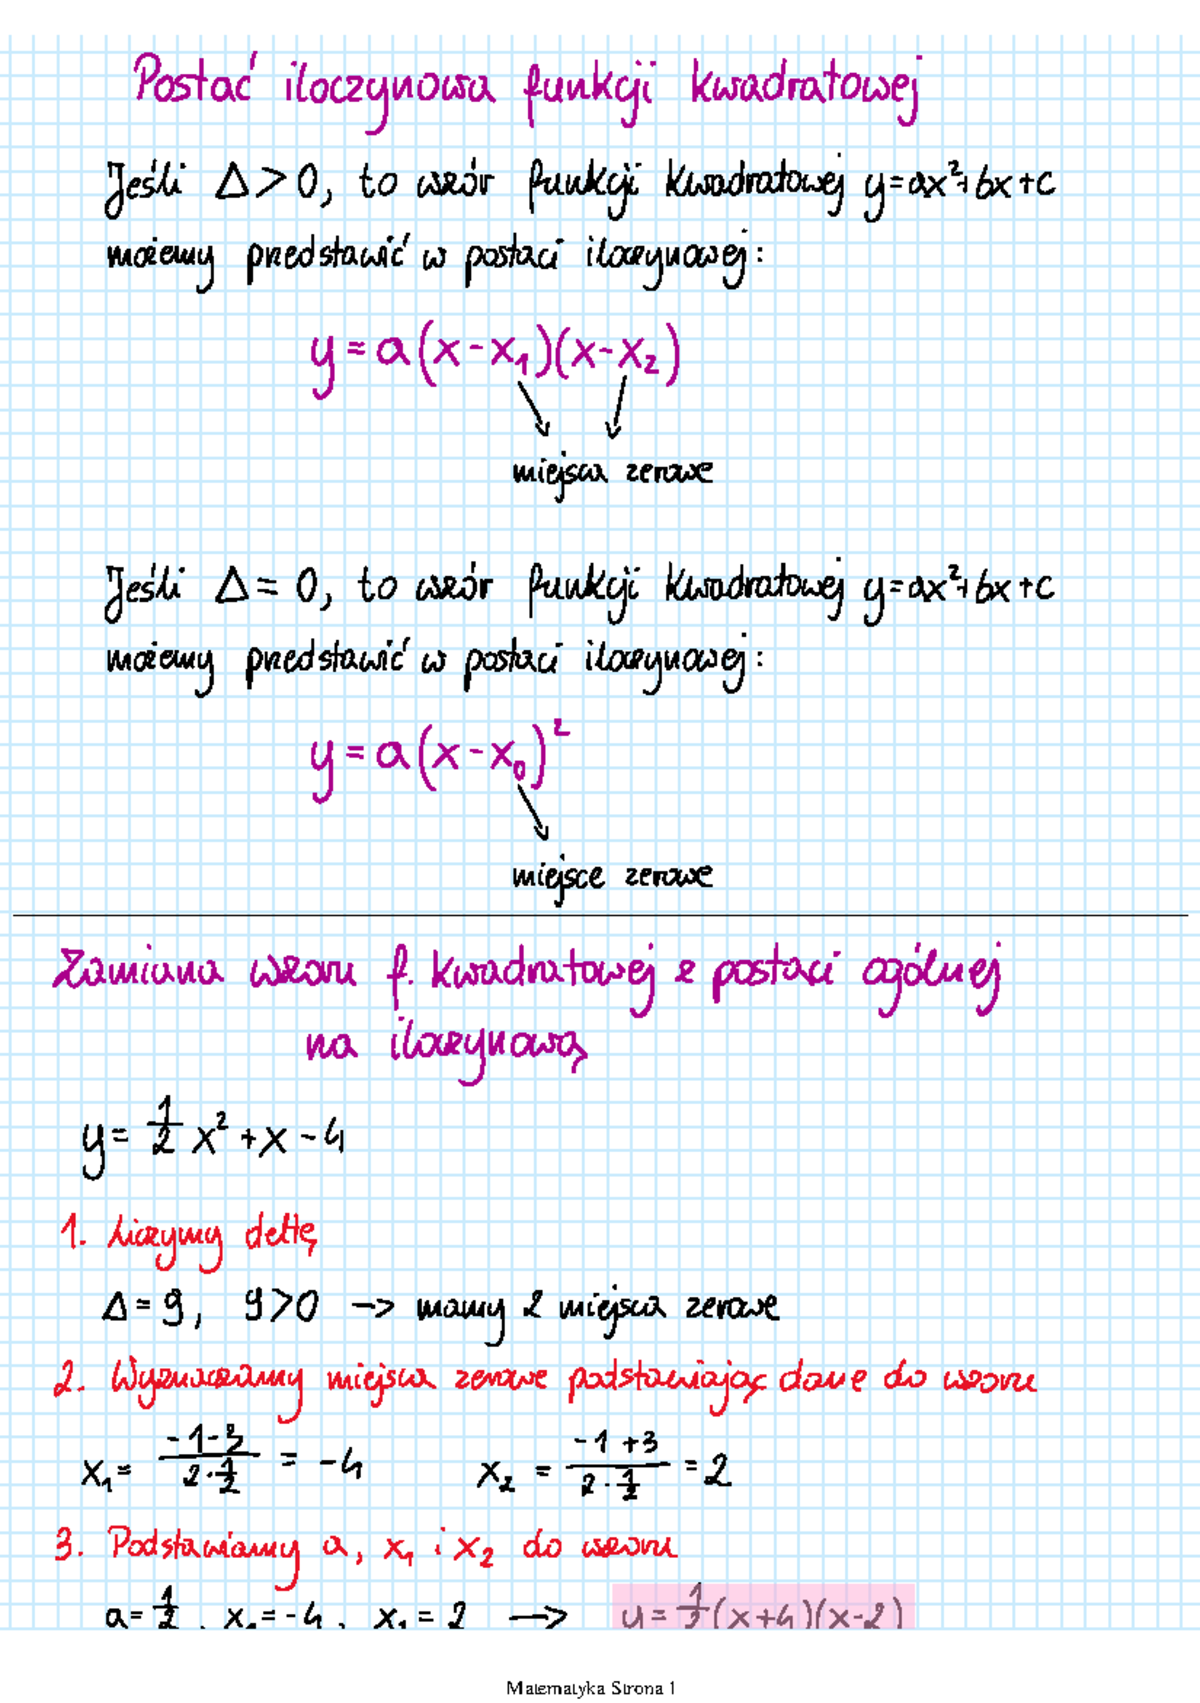 Postać iloczynowa funkcji kwadratowej
Jeśli Δ>0, to wzór funkcji kwadratowej y=ax²+bx+c
możemy przedstawić w postaci iloczynowej:
y=a(x-x₁)(x-x₂)
miejsca zerowe
Jeśli Δ=0, to wzór funkcji kwadratowej y=ax²+bx+c
możemy przedstawić w postaci iloczynowej:
y=a(x-x₀)²
miejsce zerowe
Zamiana wzoru f. kwadratowej z postaci ogólnej
na iloczynową
y= 1/2 x² +x -4
1. Liczymy deltę
Δ=9, 9>0 -> mamy 2 miejsca zerowe
2. Wyznaczamy miejsca zerowe podstawiając dane do wzoru
x₁= (-1-3)/(2·1/2) = -4 x₂ = (-1+3)/(2·1/2) =2
3. Podstawiamy a, x₁ i x₂ do wzoru
a=1/2, x₁=-4, x₁=2 -> y=1/2(x+4)(x-2)
Matematyka Strona 1